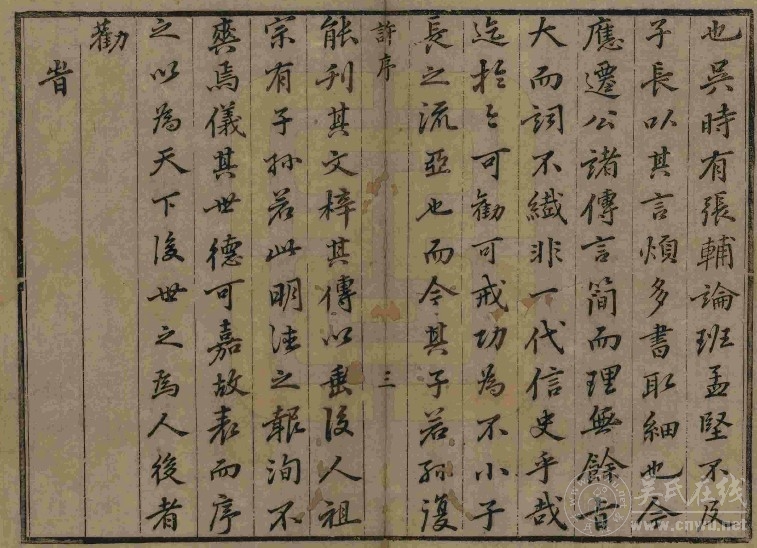 也吳時有張輔論班孟堅不及
子長以其言煩多書取細也今
應遷公諸傳言簡而理無餘旨
大而詞不纖非一代信史乎哉
迄於今可勸可戒功為不小子
長之流亞也而今其子若孫復
許序 三
能刊其文梓其傳以垂後人祖
宗有子孫若此明德之報洵不
爽焉儀其世德可嘉故表而序
之以為天下後世之為人後者
勸
旹
吴氏在线
www.cnwu.net